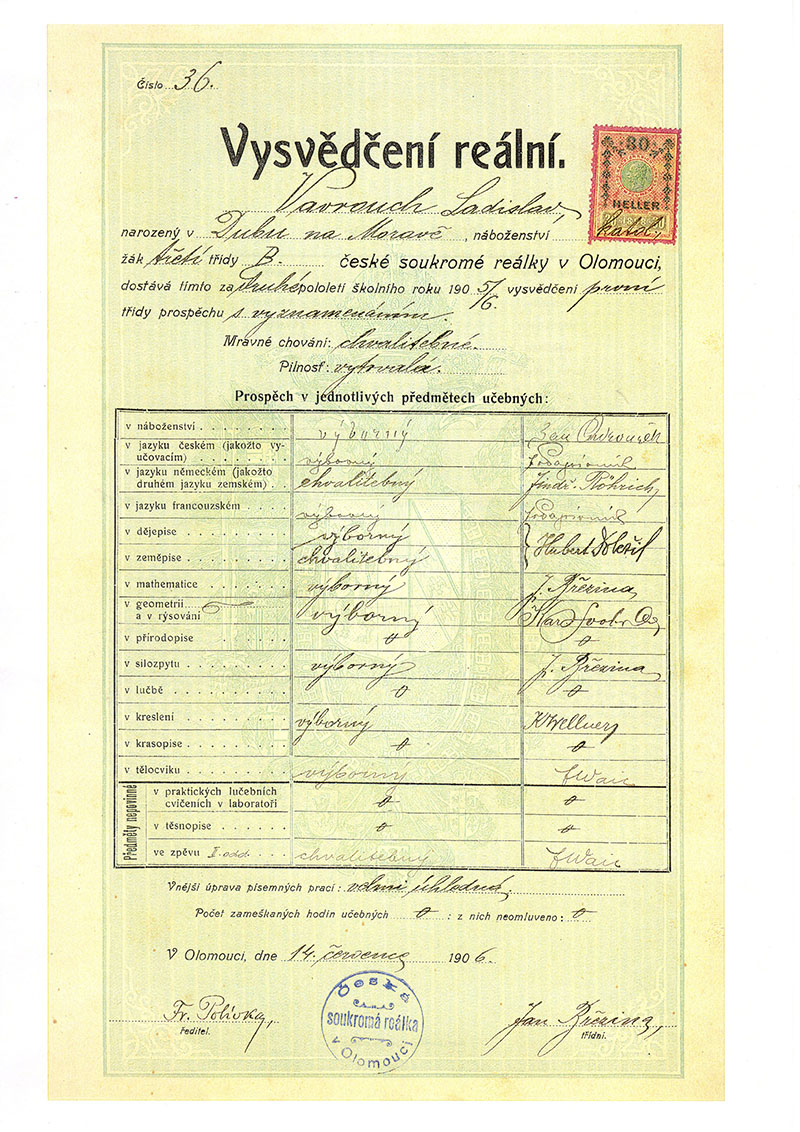 Číslo 36.
Vysvědčení reální.
30
HELLER
Vavrouch Ladislav,
narozený v Dubu na Moravě, náboženství katol.,
žák třetí třídy B. české soukromé reálky v Olomouci,
dostává tímto za druhé pololetí školního roku 1905/6. vysvědčení první
třídy prospěchu s vyznamenáním.
Mravné chování: chvalitebné.
Pilnosť: vytrvalá.
Prospěch v jednotlivých předmětech učebných:
v náboženství výborný Jan
v jazyku českém (jakožto vy-
učovacím) výborný
v jazyku německém (jakožto
druhém jazyku zemském) chvalitebný Jindř. Röhrich,
v jazyku francouzském výborný
v dějepise výborný Hubert Doležil
v zeměpise chvalitebný
v mathematice výborný J. Březina,
v geometrii
a v rýsování výborný Kar. Svoboda,
v přírodopise 0 0
v silozpytu výborný J. Březina,
v lučbě 0 0
v kreslení výborný K Wellner,
v krasopise 0 0
v tělocviku výborný
Předměty nepovinné
v praktických lučebních
cvičeních v laboratoři 0 0
v těsnopise 0 0
ve zpěvu II. odd. chvalitebný
Vnější úprava písemných prací: velmi úhledná.
Počet zameškaných hodin učebných 0 : z nich neomluveno: 0
V Olomouci, dne 14. července 1906.
Fr. Polívka,
ředitel.
Česká
soukromá reálka
v Olomouci
Jan Březina,
třídní.